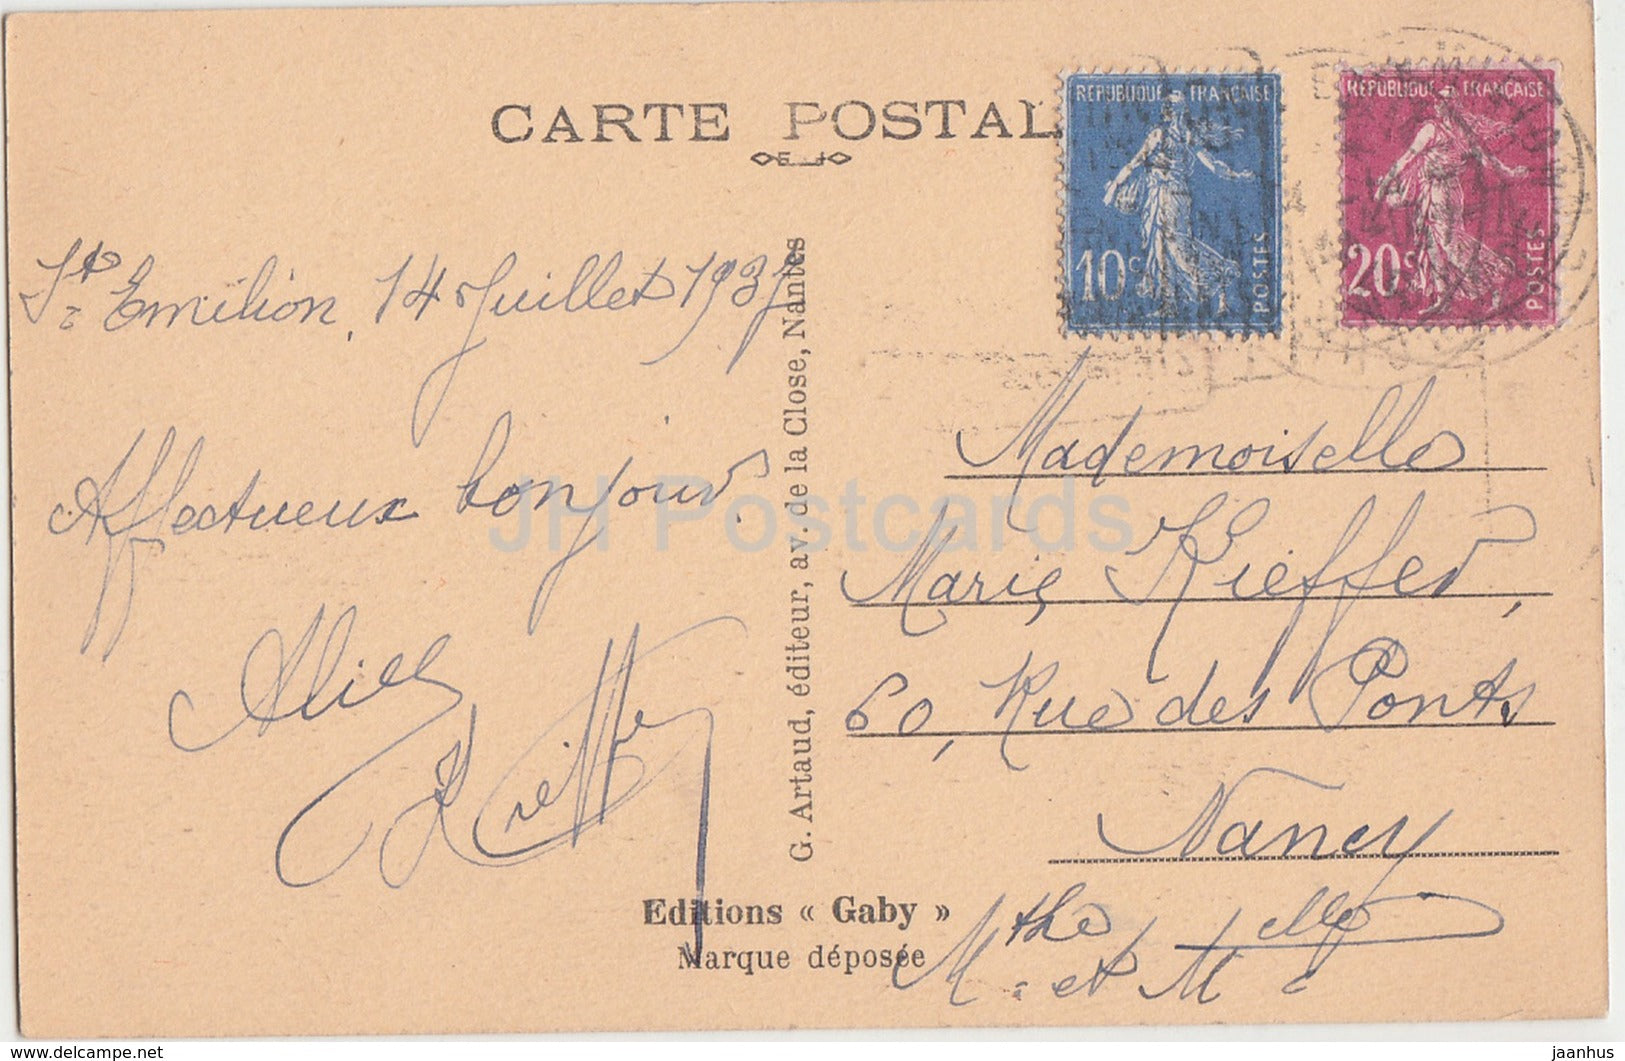 CARTE POSTALE
REPUBLIQUE FRANÇAISE
10c
POSTES
REPUBLIQUE FRANÇAISE
20c
POSTES
St Emilion, 14 Juillet 1937
Affectueux bonjour.
Alice
G. Artaud, éditeur, av. de la Close, Nantes
Editions « Gaby »
Marque déposée
Mademoiselle
Marie Kieffer,
60, Rue des Ponts
Nancy
Mthe et M elle
JH Postcards
delcampe.net
jaanhus